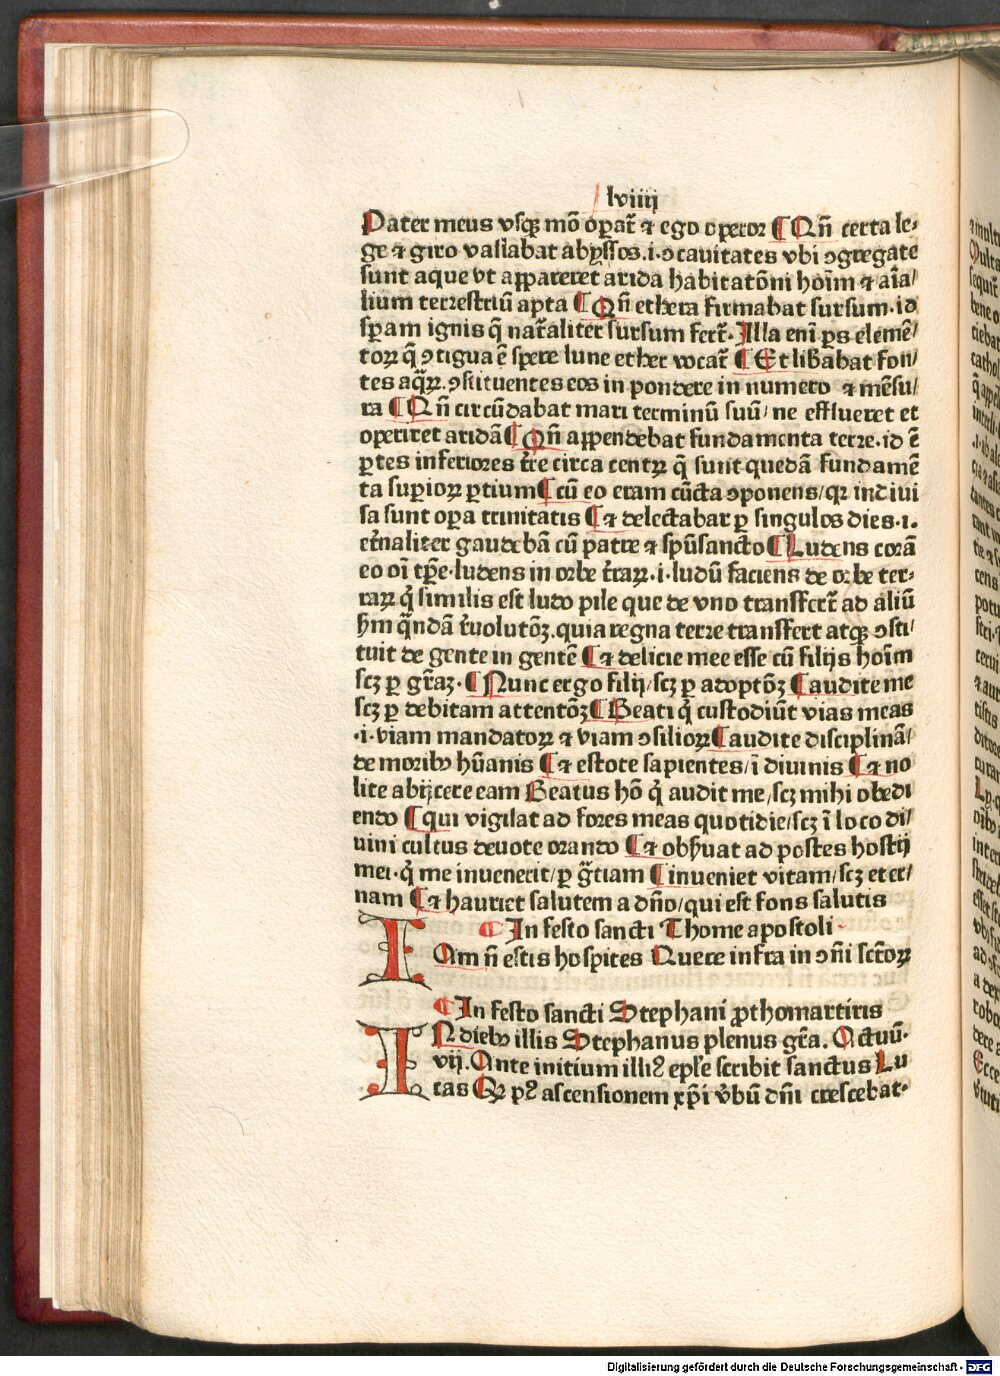 lviiij
Pater meus vsqꝫ mō opat̄ ⁊ ego operor ¶ Qn̄ certa le⸗
ge ⁊ giro vallabat abyssos.i.ↄcauitates vbi ↄgregate
sunt aque vt appareret arida habitatōni hoīm ⁊ aīa/
lium terrestriū apta ¶ Qn̄ ethera firmabat sursum.id
speram ignis q̄ nat̄aliter sursum fert̄. Illa eni ꝑs elemē/
toꝝ q̄ ↄtigua ē spere lune ether vocat̄ ¶ Et libabat fon/
tes aq̄ꝝ.ↄstituentes eos in pondere in numero ⁊ mēsu/
ra ¶ Qn̄ circūdabat mari terminū suū/ne efflueret et
operiret aridā ¶ Qn̄ appendebat fundamenta terre.id ē
ꝑtes inferiores tr̄e circa centꝝ q̄ sunt quedā fundamē
ta superioꝝ ꝑtium ¶ cū eo eram cūcta ↄponens/qꝛ indiui
sa sunt opa trinitatis ¶ ⁊ delectabar ꝑ singulos dies.i.
et̄naliter gaudebā cū patre ⁊ spūsancto ¶ Ludens corā
eo oi tꝑe.ludens in orbe tr̄aꝝ.i.ludū faciens de orbe ter⸗
raꝝ q̄ similis est ludo pile que de vno transfert̄ ad aliū
ẜm qn̄dā r̄uolutōꝫ.quia regna terre transfert atqꝫ ↄsti/
tuit de gente in gentē ¶ ⁊ delicie mee esse cū filijs hoīm
scꝫ ꝑ gr̄aꝫ. ¶ Nunc ergo filij/scꝫ ꝑ adoptōꝫ ¶ audite me
scꝫ ꝑ debitam attentōꝫ ¶ Beati q̇ custodiūt vias meas
.i.viam mandatoꝝ ⁊ viam ↄsilioꝝ ¶ audite disciplinā/
de moribꝰ hūanis ¶ ⁊ estote sapientes/ī diuinis ¶ ⁊ no
lite abijcere eam Beatus hō q̇ audit me/scꝫ mihi obedi
endo ¶ qui vigilat ad fores meas quotidie/scꝫ ī loco di/
uini cultus deuote orando ¶ ⁊ obẜuat ad postes hostij
mei.q̇ me inuenerit/ꝑ gr̄tiam ¶ inueniet vitam/scꝫ eter/
nam ¶ ⁊ hauriet salutem a dn̄o/qui est fons salutis
¶ In festo sancti Thome apostoli
IAm n̄ estis hospites Quere infra in ↄn̄i sct̄oꝝ
¶ In festo sancti Stephani ꝓthomartiris
IN diebꝰ illis Stephanus plenus gr̄a. Actuū.
vij. Ante initium illiꝰ eple scribit sanctus Lu
cas Qꝛ pꝰ ascensionem xp̄i v̄bū dn̄i crescebat.
Digitalisierung gefördert durch die Deutsche Forschungsgemeinschaft - DFG